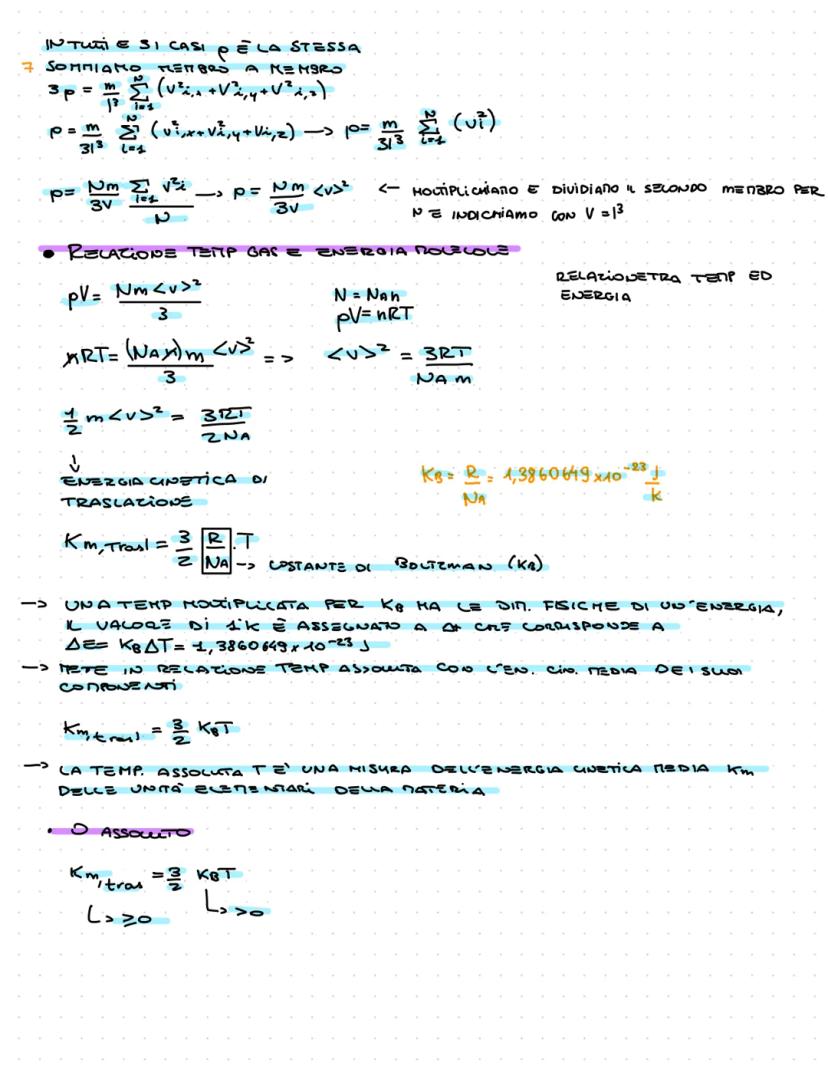 IN TUTTI E 3 I CASI p È LA STESSA
7 SOMMIAMO MEMBRO A MEMBRO
3p = m/l³ Σ_{i=1}^{N} (V²i,x + V²i,y + V²i,z)
p = m/3l³ Σ_{i=1}^{N} (v²i,x + v²i,y + vi,z) —> p = m/3l³ Σ_{i=1}^{N} (vi²)
p = Nm/3V Σ_{i=1} v²i / N —> p = Nm/3V <v>² <— MOLTIPLICHIAMO E DIVIDIAMO IL SECONDO MEMBRO PER
N E INDICHIAMO CON V = l³
• RELAZIONE TEMP GAS E ENERGIA MOLECOLE
RELAZIONE TRA TEMP ED
ENERGIA
pV = Nm<v>²/3
N = NAn
pV = nRT
nRT = (NAn)m<v>²/3 => <v>² = 3RT/NAm
1/2 m<v>² = 3RT/2NA
↓
ENERGIA CINETICA DI
TRASLAZIONE
KB = R/NA = 1,3860649 x 10⁻²³ J/K
Km,Trasl = 3/2 R/NA . T
—> COSTANTE DI BOLTZMAN (KB)
—> UNA TEMP MOLTIPLICATA PER KB HA LE DIM. FISICHE DI UN'ENERGIA,
IL VALORE DI 1°K È ASSEGNATO A Δt CHE CORRISPONDE A
ΔE = KBΔT = 1,3860649 x 10⁻²³ J
—> METE IN RELAZIONE TEMP ASSOLUTA CON L'EN. CIN. MEDIA DEI SUOI
COMPONENTI
Km,trasl = 3/2 KBT
—> LA TEMP. ASSOLUTA T E' UNA MISURA DELL'ENERGIA CINETICA MEDIA Km
DELLE UNITÀ ELEMENTARI DELLA MATERIA
• O ASSOLUTO
Km,tras = 3/2 KBT
↳ ≥0 ↳ >0